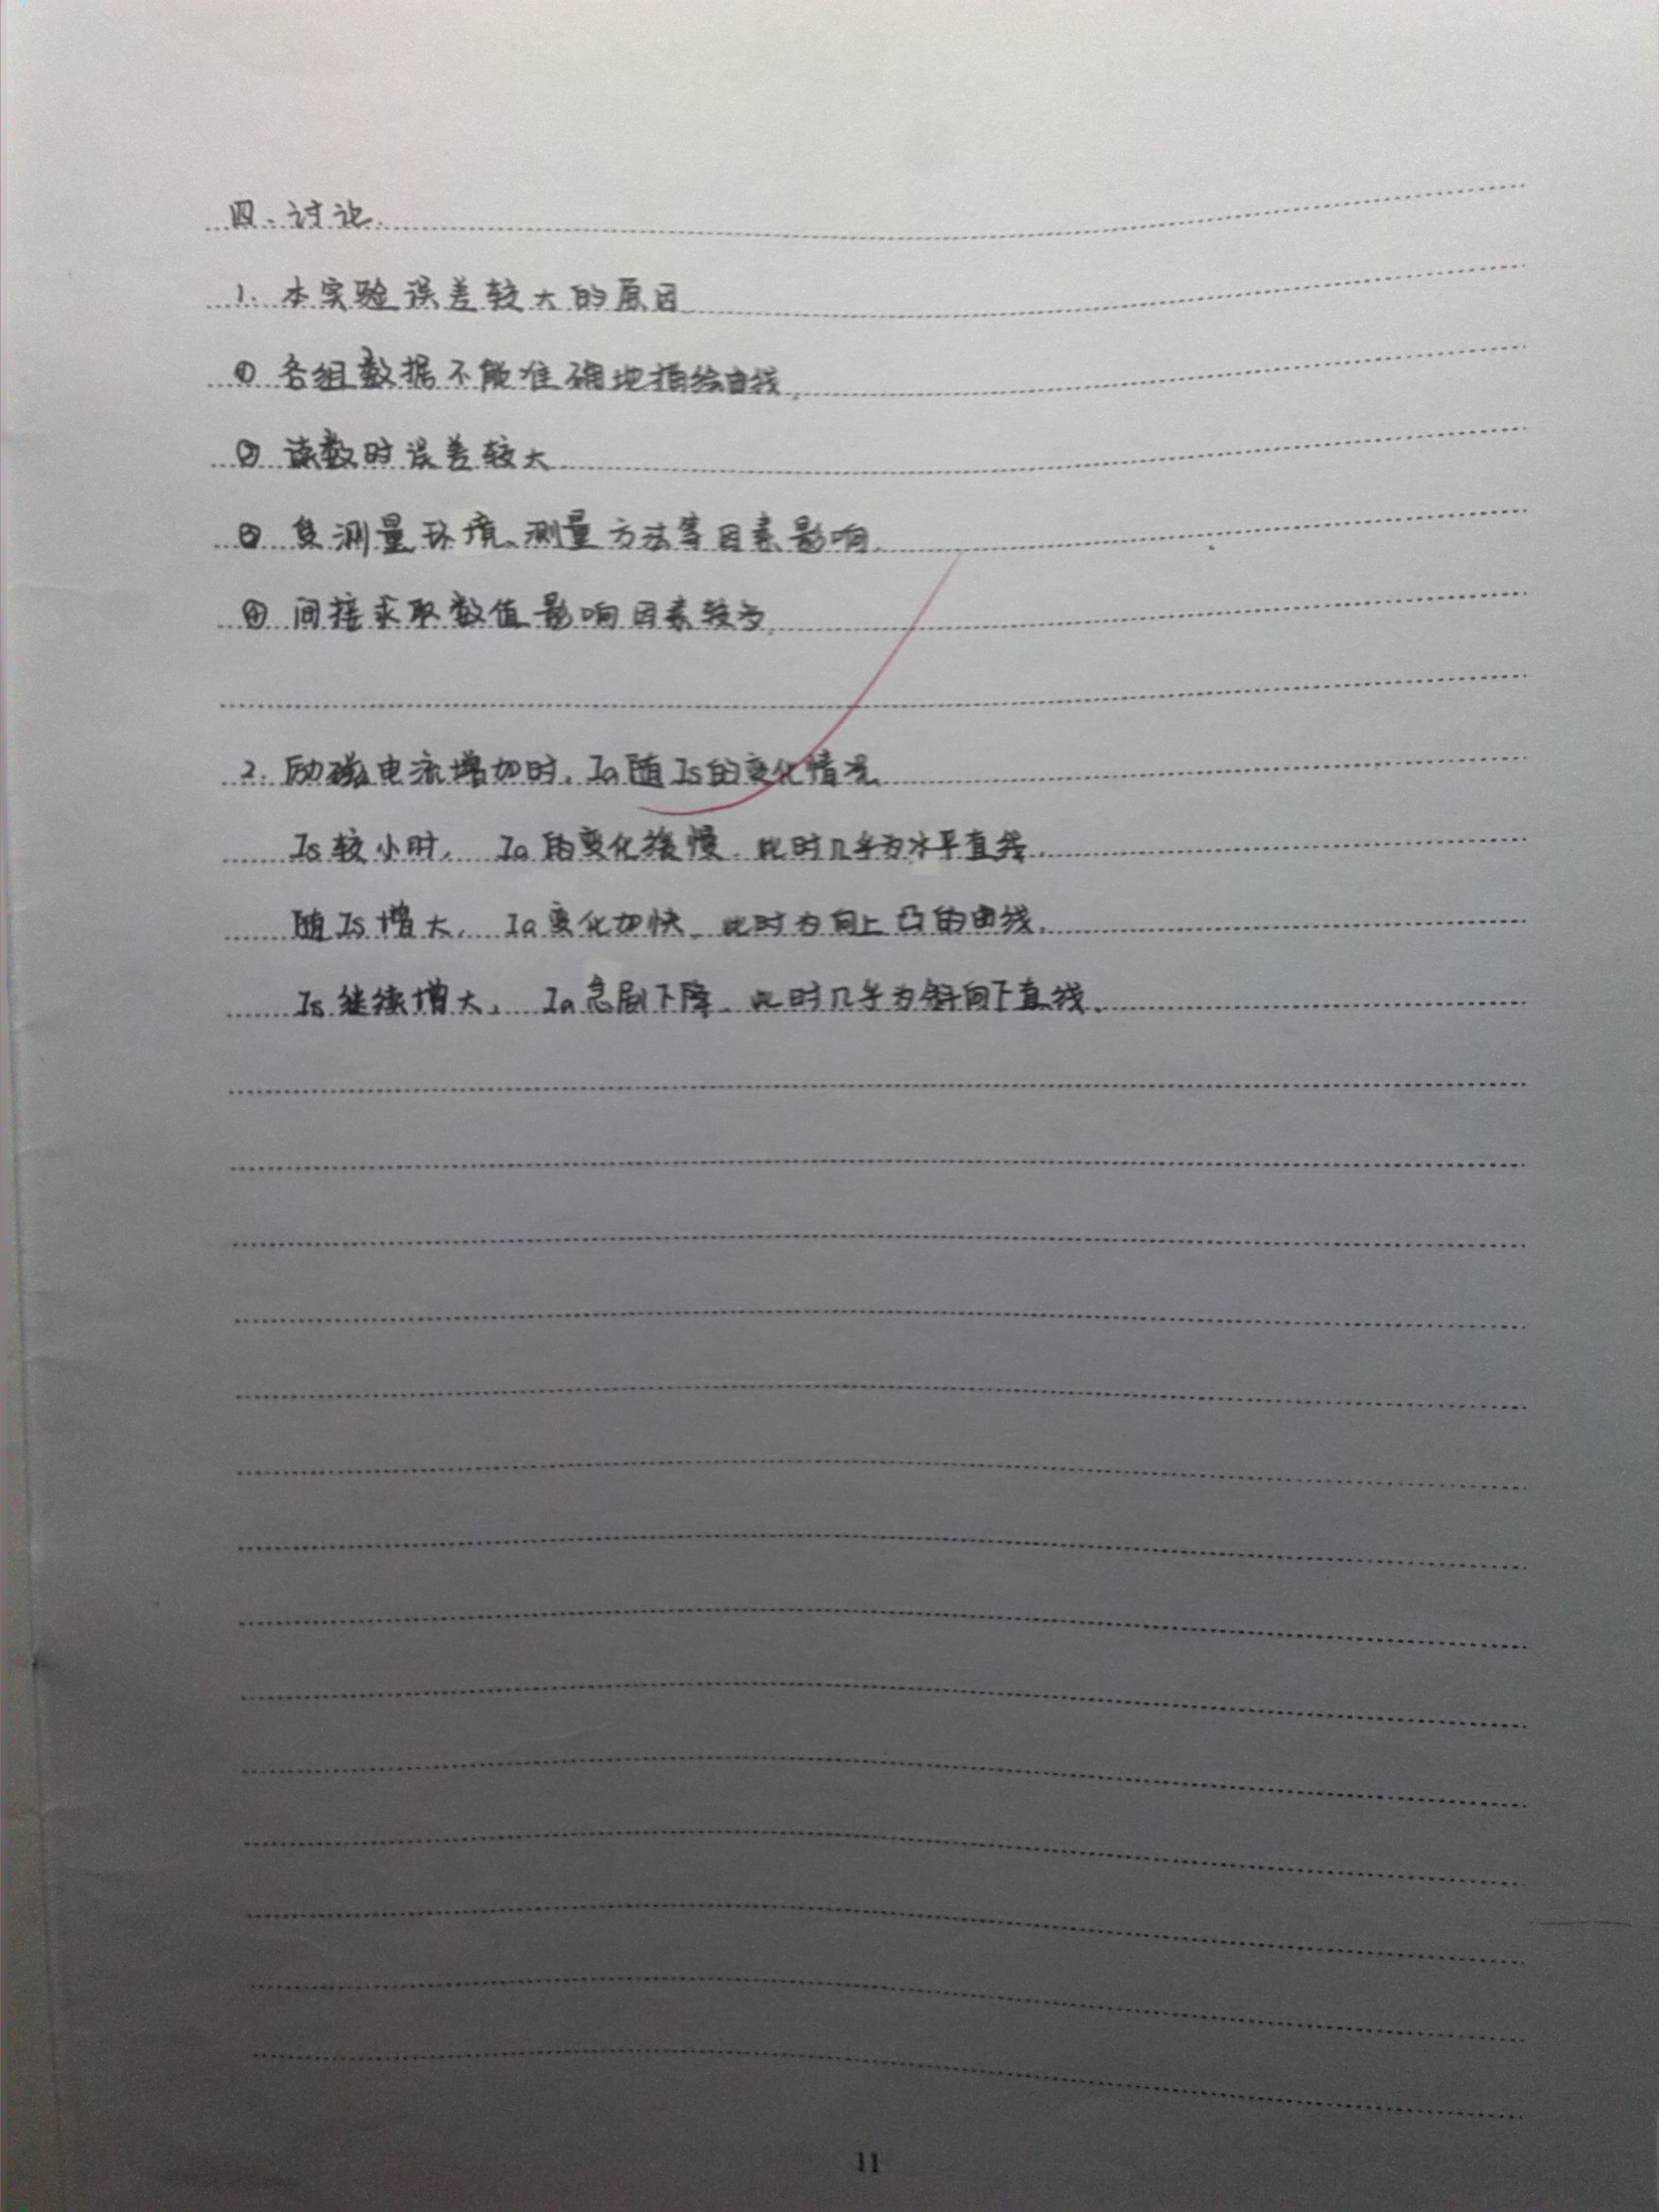 四、讨论.
1. 本实验误差较大的原因
① 各组数据不能准确地描绘曲线.
② 读数时误差较大
③ 受测量环境、测量方法等因素影响.
④ 间接求取数值影响因素较多.
2. 励磁电流增加时, Ia随Is的变化情况.
Is较小时, Ia的变化缓慢. 此时几乎为水平直线.
随Is增大, Ia变化加快. 此时为向上凸的曲线.
Is继续增大, Ia急剧下降. 此时几乎为斜向下直线.
11